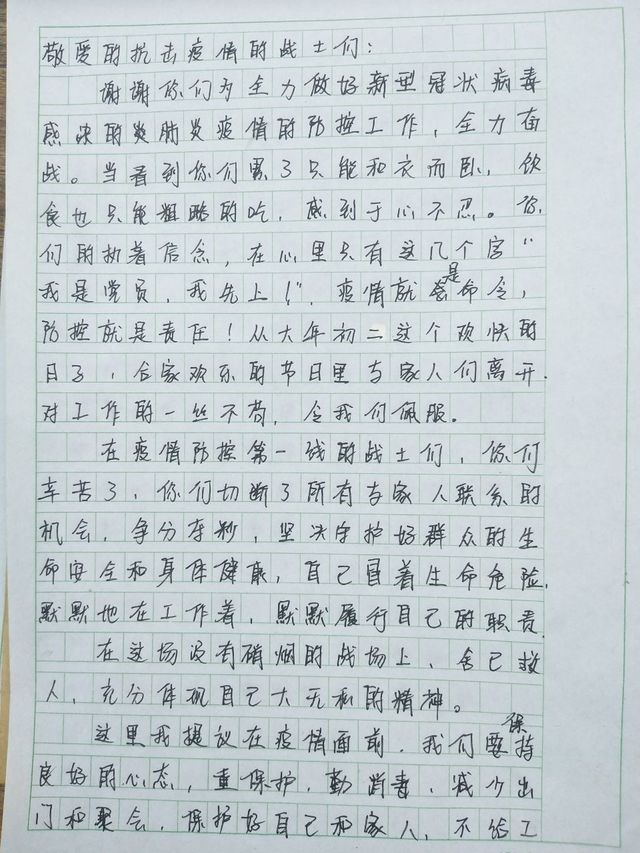 敬爱的抗击疫情的战士们：
谢谢你们为全力做好新型冠状病毒
感决的炎肺炎疫情的防控工作，全力奋
战。当看到你们累了只能和衣而卧，饮
食也只能粗略的吃，感到于心不忍。你
们的执着信念，在心里只有这几个字“
我是党员，我先上！”，疫情就是命令，
防控就是责任！从大年初二这个欢快的
日子，合家欢乐的节日里与家人们离开.
对工作的一丝不苟，令我们佩服。
在疫情防控第一线的战士们，你们
辛苦了，你们切断了所有与家人联系的
机会，争分夺秒，坚决守护好群众的生
命安全和身体健康，自己冒着生命危险.
默默地在工作着，默默履行自己的职责.
在这场没有硝烟的战场上，舍己救
人，充分体现自己大无私的精神。
这里我提议在疫情面前，我们要保持
良好的心态，重保护，勤消毒，减少出
门和聚会，保护好自己和家人，不给工